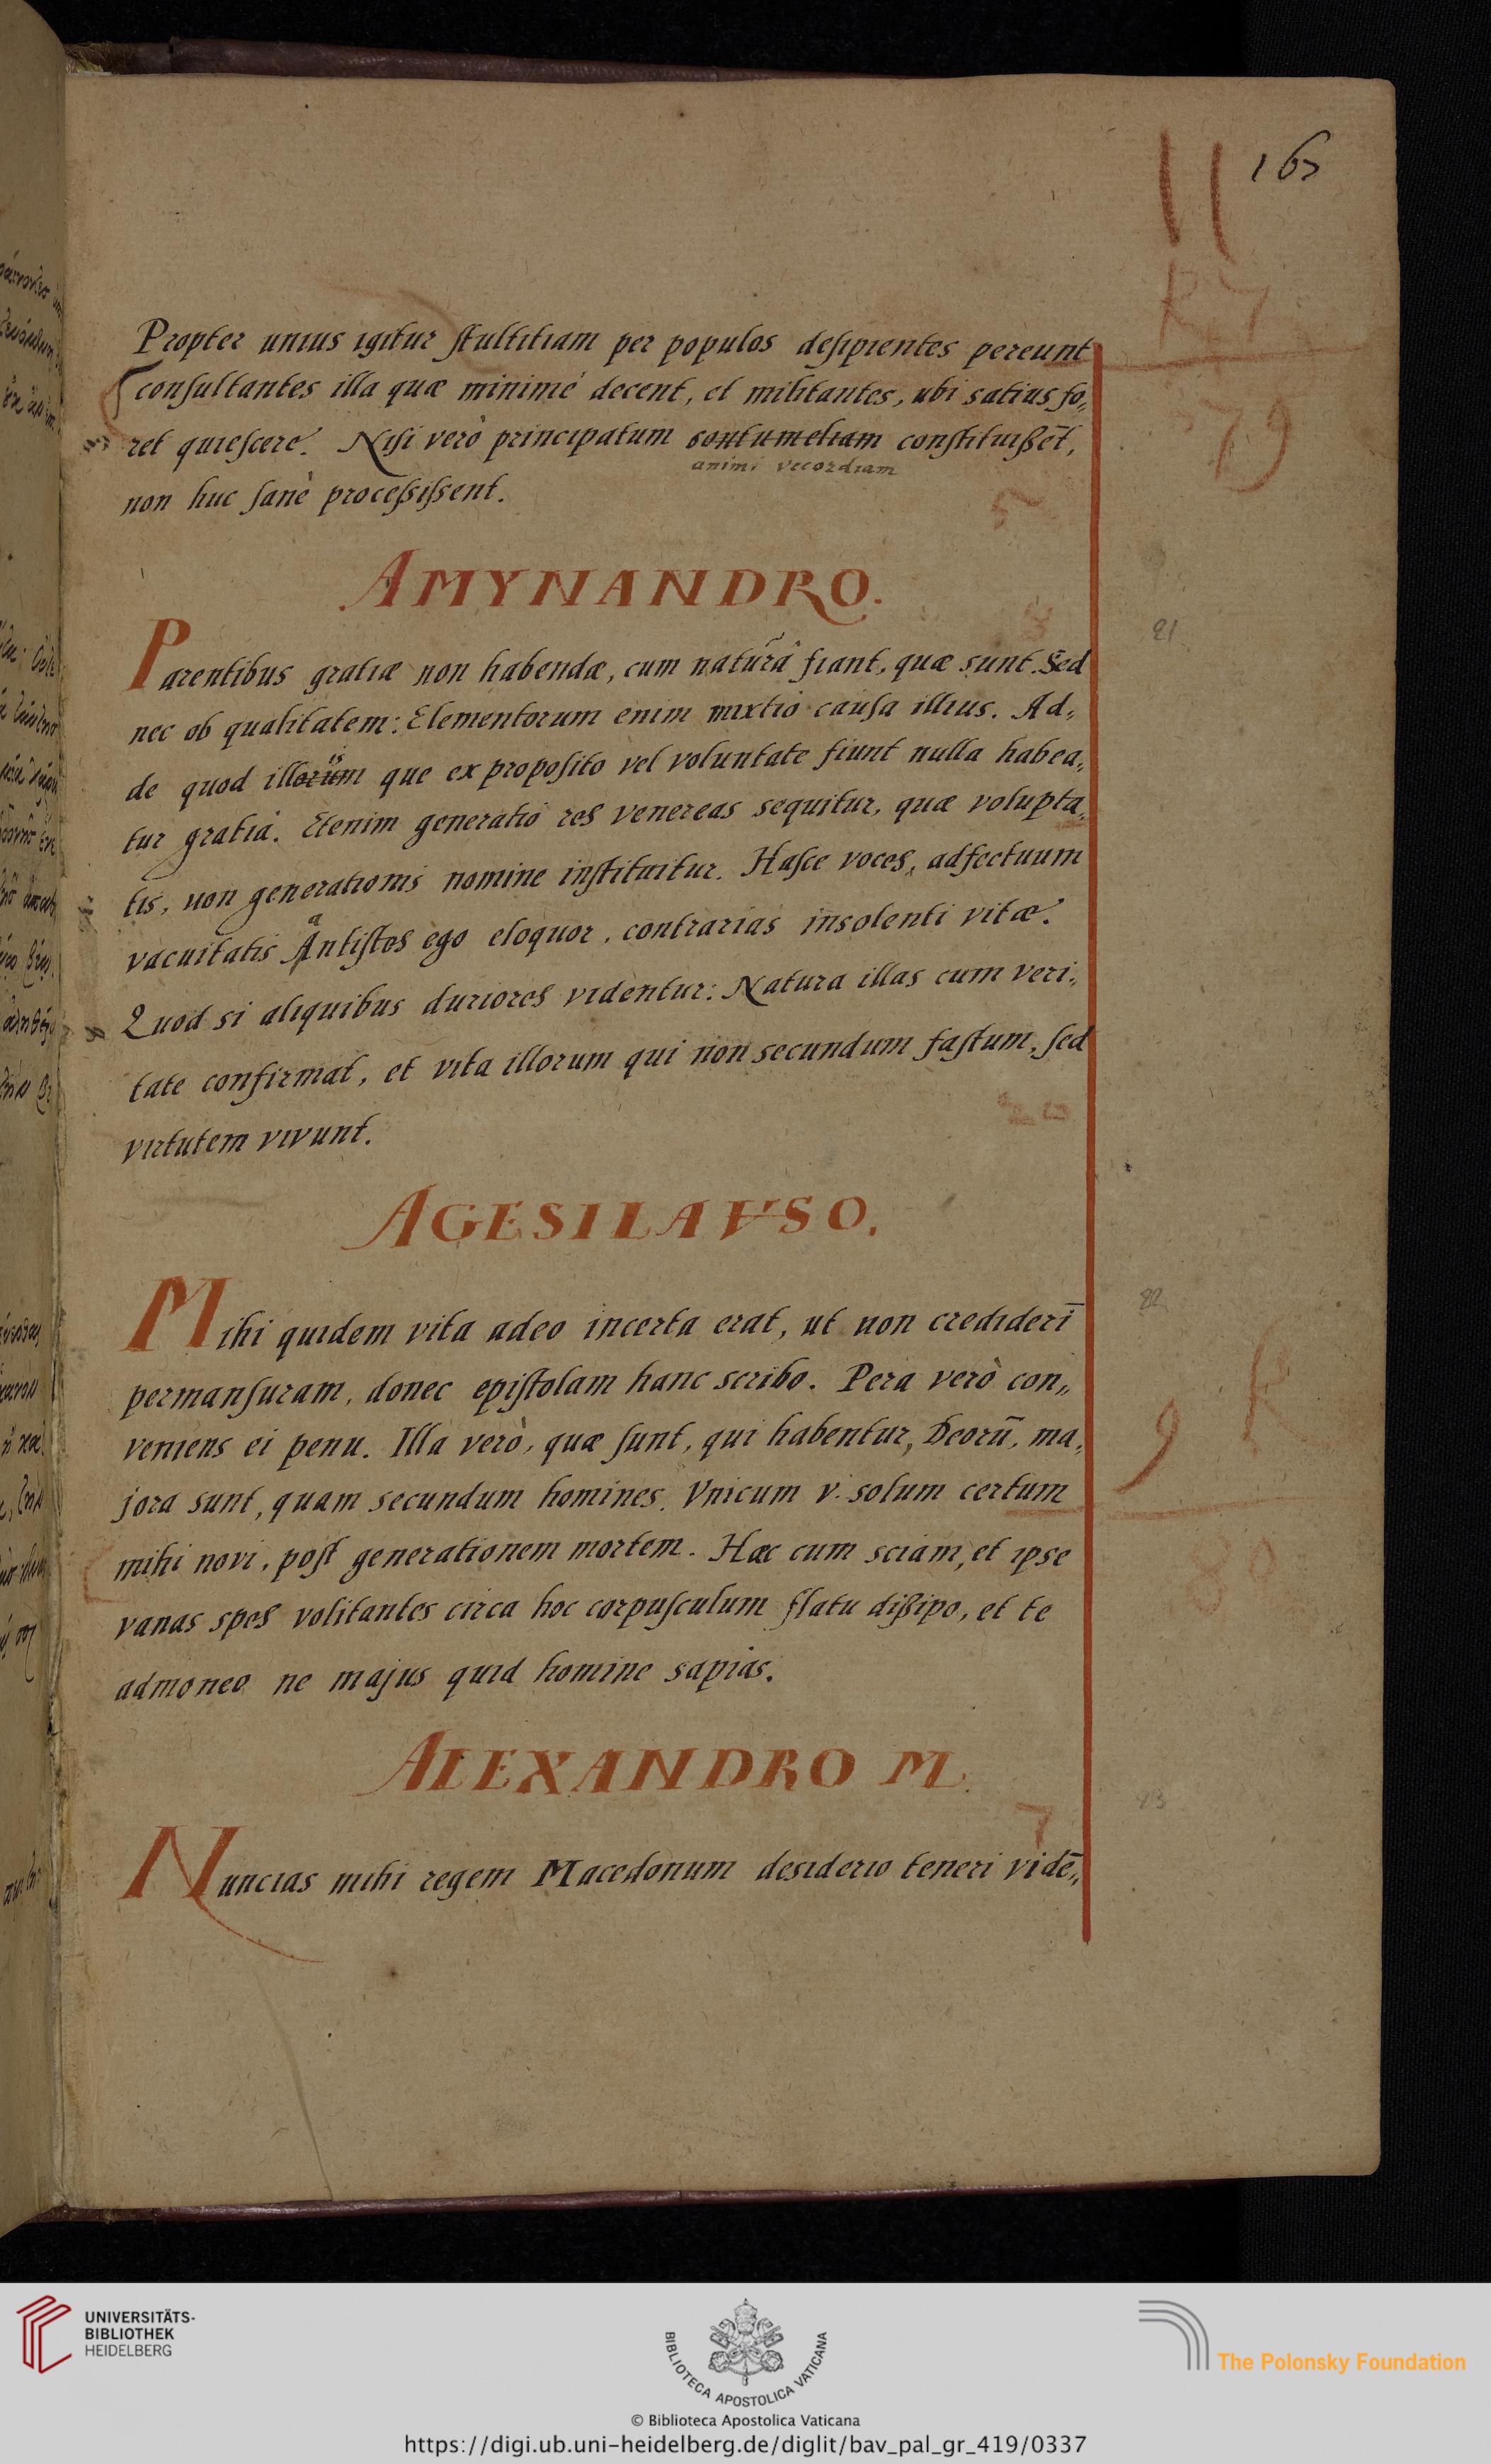 167
II
R 7
79
Propter unius igitur stultitiam per populos desipientes pereunt
consultantes illa quæ minimé decent, et militantes, ubi satius fo„
ret quiescere. Nisi verò principatum contumeliam constituißẽt,
animi vecordiam
non huc sanè processissent.
5
AMYNANDRO.
21
Parentibus gratiæ non habendæ, cum naturâ fiant, quæ sunt. Sed
nec ob qualitatem: Elementorum enim mixtio causa illius. Ad„
de quod illorum que ex proposito vel voluntate fiunt nulla habea„
tur gratia. Etenim generatio res venereas sequitur, quæ volupta„
tis, non generationis nomine instituitur. Hasce voces, adfectuum
vacuitatis Antistes ego eloquor, contrarias insolenti vitæ.
Quod si aliquibus duriores videntur: Natura illas cum veri„
tate confirmat, et vita illorum qui non secundum fastum, sed
virtutem vivunt.
AGESILAVSO.
22
Mihi quidem vita adeo incerta erat, ut non crediderī
permansuram, donec epistolam hanc scribo. Pera verò con„
veniens ei penu. Illa verò, quæ sunt, qui habentur, Deorū, ma„
jora sunt, quam secundum homines. Vnicum v. solum certum
9 R
80
mihi novi, post generationem mortem. Hæc cum sciam, et ipse
vanas spes volitantes circa hoc corpusculum flatu dißipo, et te
admoneo ne majus quid homine sapias.
ALEXANDRO M.
7
23
Nuncias mihi regem Macedonum desiderio teneri vidē„
UNIVERSITÄTS-
BIBLIOTHEK
HEIDELBERG
BIBLIOTECA APOSTOLICA VATICANA
The Polonsky Foundation
© Biblioteca Apostolica Vaticana
https://digi.ub.uni-heidelberg.de/diglit/bav_pal_gr_419/0337